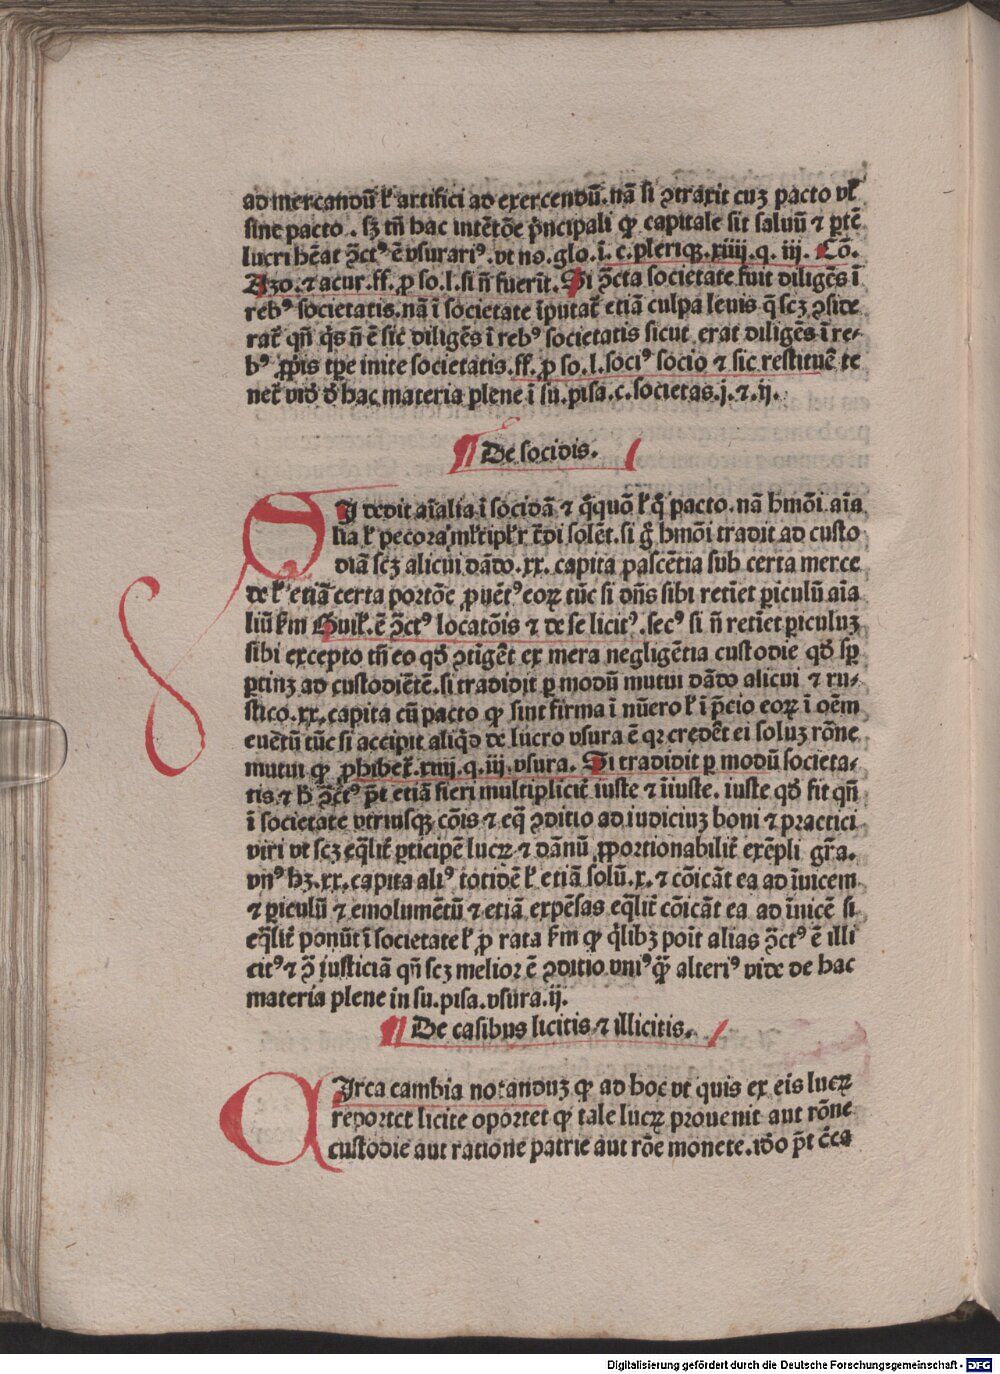 ad mercandū ł artifici ad exercendū. nā si ꝯtraxit cuʒ pacto vł
sine pacto. sʒ tn̄ hac intētōe p̄ncipali qꝫ capitale sit saluū ⁊ ꝑtē
lucri hēat ꝯ̄ctꝰ ē vsurariꝰ. vt no. glo. ī. c. pleriqꝫ. xiiij. q. iij. Cō.
Azo. ⁊ acur. ff. ꝓ so. l. si n̄ fuerīt. Si ꝯ̄cta societate fuit diligēs ī
rebꝰ societatis. nā ī societate īputat̄ etiā culpa leuis q̄ scʒ ꝯside
rat̄ qn̄ q̇s n̄ ē sic diligēs ī rebꝰ societatis sicut erat diligēs ī re-
bꝰ ꝓp̄is tꝑe inite societatis. ff. ꝓ so. l. sociꝰ socio ⁊ sic restituē te
net̄ vn̄ d̄ hac materia plene ī su. pisa. c. societas. j. ⁊. ij.
¶ De socidis.
SI dedit aīalia ī socidā ⁊ q̄quō ł q̄ pacto. nā hmōi aīa
lia ł pecora mł̄tiplr̄ t̄di solēt. si g̊ hmōi tradit ad custo
diā scʒ alicui dādo. xx. capita pascētia sub certa merce
de ł etiā certa portōe ꝓuētꝰ eoꝝ tūc si dn̄s sibi retīet ꝑiculū aīa
liū ẜm Guil. ē ꝯ̄ctꝰ locatōis ⁊ de se licitꝰ. secꝰ si n̄ retīet ꝑiculuʒ
sibi excepto tn̄ eo qd̄ ꝯtigēt ex mera negligētia custodie qd̄ sꝑ
ꝑtinʒ ad custodiētē. si tradidit ꝑ modū mutui dādo alicui ⁊ ru-
stico. xx. capita cū pacto qꝫ sint firma ī nūero ł ī p̄cio eoꝝ ī oēm
euētū tūc si accipit aliq̇d de lucro vsura ē qꝛ credēt ei soluʒ rōne
mutui qꝫ ꝓhibet̄. xiiij. q. iij. vsura. Si tradidit ꝑ modū societa-
tis ⁊ h̄ ꝯ̄ctꝰ p̄t etiā fieri multiplicit̄ iuste ⁊ īiuste. iuste qd̄ fit qn̄
ī societate vtriusqꝫ cōis ⁊ eq̄ ꝯditio ad iudiciuʒ boni ⁊ practici
viri vt scʒ eq̄lit̄ ꝑticipē lucꝝ ⁊ dānū ꝓportionabilit̄ exēpli gr̄a.
vnꝰ hʒ. xx. capita aliꝰ totidē ł etiā solū. x. ⁊ cōicāt ea ad īuicem
⁊ ꝑiculū ⁊ emolumētū ⁊ etiā expēsas eq̄lit̄ cōicāt ea ad īuicē si
eq̄lit̄ ponūt ī societate ł ꝓ rata ẜm qꝫ q̇libʒ poīt alias ꝯ̄ctꝰ ē illi
citꝰ ⁊ ꝯ̄ justiciā qn̄ scʒ melior ē ꝯditio vniꝰ qꝫ̄ alteriꝰ vide de hac
materia plene in su. pisa. vsura. ij.
¶ De casibus licitis ⁊ illicitis.
CIrca cambia notanduʒ qꝫ ad hoc vt quis ex eis lucꝝ
reportet licite oportet qꝫ tale lucꝝ prouenit aut rōne
custodie aut ratione patrie aut rōe monete. iđo p̄t c̄ca
Digitalisierung gefördert durch die Deutsche Forschungsgemeinschaft - DFG